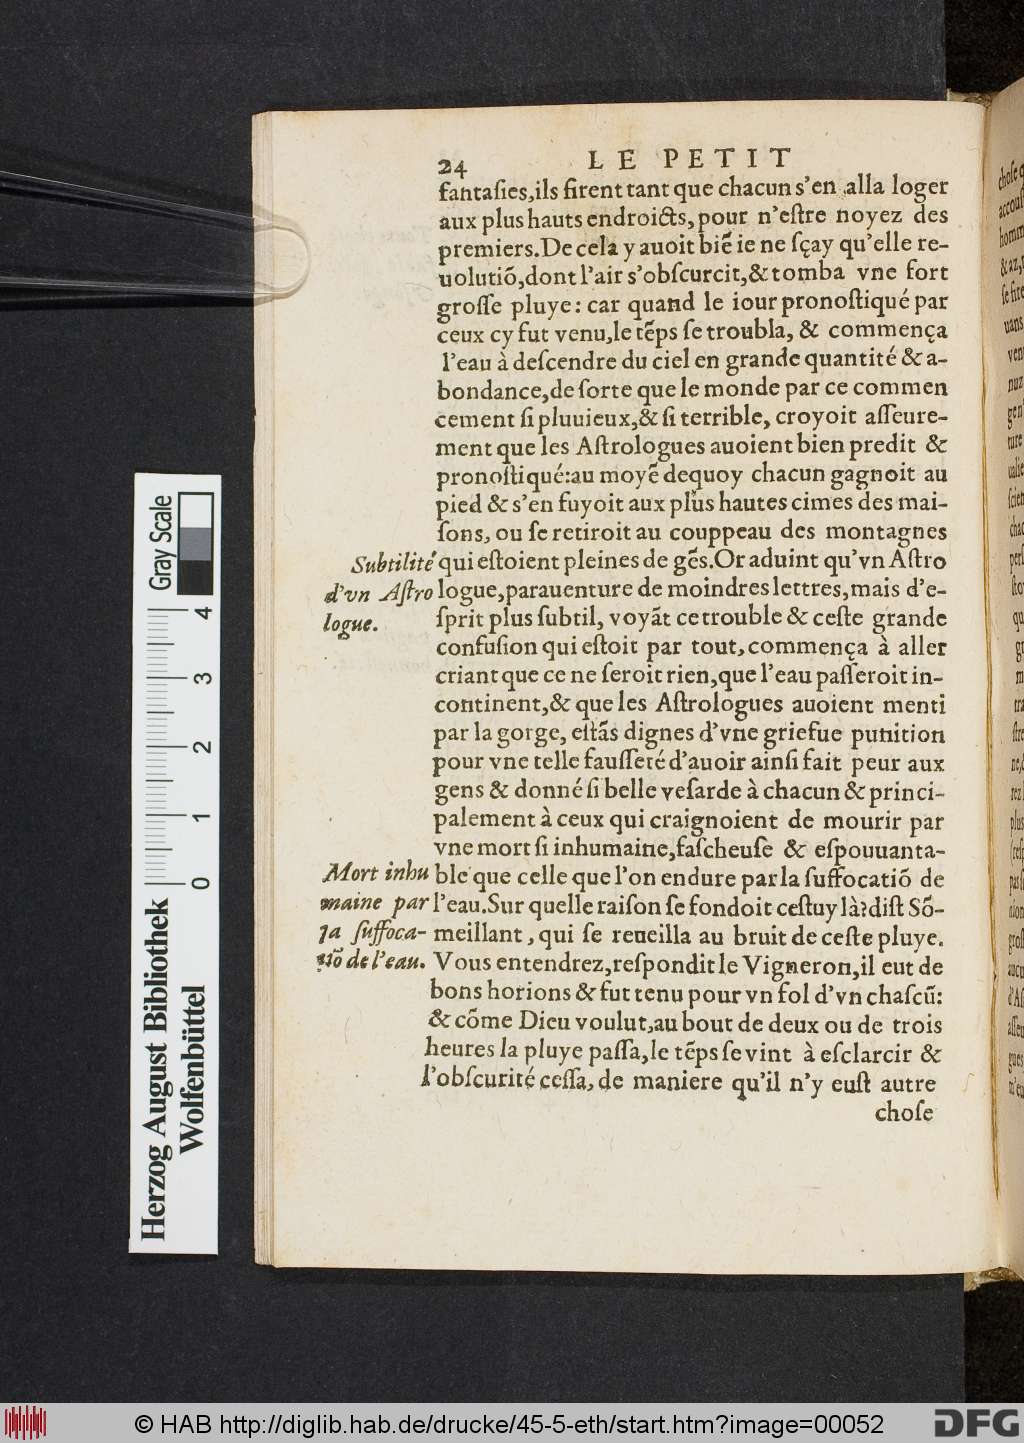 24 LE PETIT
fantaſies,ils firent tant que chacun s'en alla loger
aux plus hauts endroicts, pour n'eſtre noyez des
premiers. De cela y auoit biẽ ie ne ſçay qu'elle re-
uolutiõ, dont l'air s'obſcurcit, & tomba vne fort
groſſe pluye: car quand le iour pronoſtiqué par
ceux cy fut venu, le tẽps ſe troubla, & commença
l'eau à deſcendre du ciel en grande quantité & a-
bondance, de ſorte que le monde par ce commen
cement ſi pluuieux, & ſi terrible, croyoit aſſeure-
ment que les Aſtrologues auoient bien predit &
pronoſtiqué: au moyẽ dequoy chacun gagnoit au
pied & s'en fuyoit aux plus hautes cimes des mai-
ſons, ou ſe retiroit au couppeau des montagnes
qui eſtoient pleines de gẽs. Or aduint qu'vn Aſtro
logue, parauenture de moindres lettres, mais d'e-
ſprit plus ſubtil, voyãt ce trouble & ceſte grande
confuſion qui eſtoit par tout, commença à aller
criant que ce ne ſeroit rien, que l'eau paſſeroit in-
continent, & que les Aſtrologues auoient menti
par la gorge, eſtãs dignes d'vne griefue punition
pour vne telle fauſſeté d'auoir ainſi fait peur aux
gens & donné ſi belle veſarde à chacun & princi-
palement à ceux qui craignoient de mourir par
vne mort ſi inhumaine, faſcheuſe & eſpouuanta-
ble que celle que l'on endure par la ſuffocatiõ de
l'eau. Sur quelle raiſon ſe fondoit ceſtuy là? diſt Sõ-
meillant, qui ſe reueilla au bruit de ceſte pluye.
Vous entendrez, reſpondit le Vigneron, il eut de
bons horions & fut tenu pour vn fol d'vn chaſcũ:
& cõme Dieu voulut, au bout de deux ou de trois
heures la pluye paſſa, le tẽps ſe vint à eſclarcir &
l'obſcurité ceſſa, de maniere qu'il n'y euſt autre
choſe
Subtilité
d'vn Aſtro
logue.
Mort inhu
maine par
la ſuffoca-
tiõ de l'eau.
Gray Scale
0 1 2 3 4
Herzog August Bibliothek
Wolfenbüttel
© HAB http://diglib.hab.de/drucke/45-5-eth/start.htm?image=00052
DFG